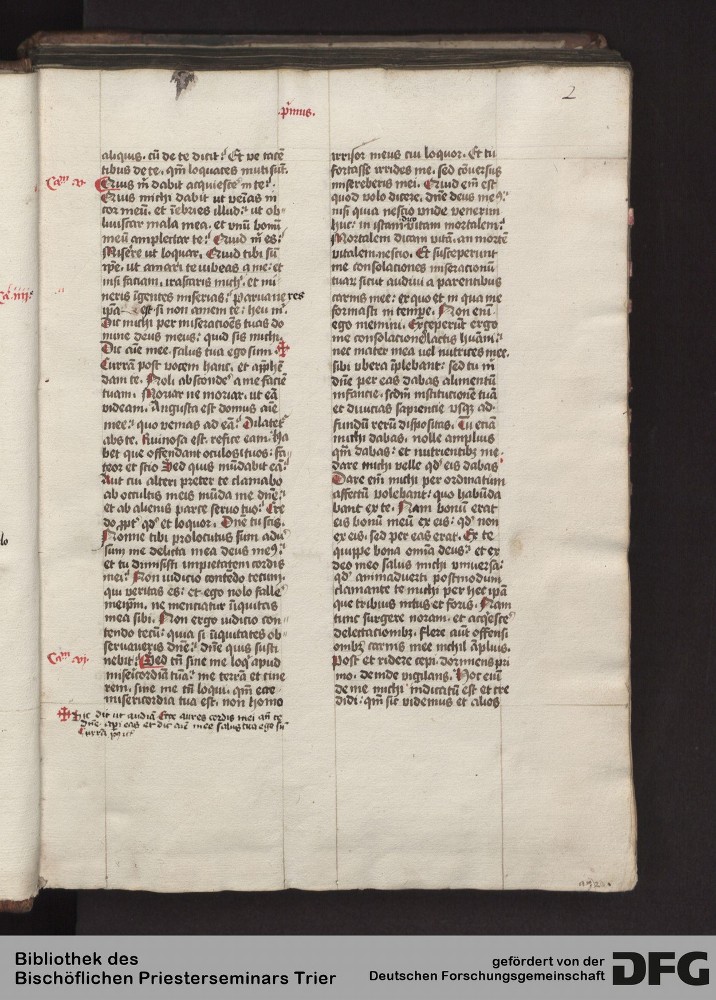 2
p̄mus.
aliquis. cū de te dicit? Et ve tacē
tibus de te. qm̄ loquaces muti sūt.
Cam̄ v.
Quis m̄ dabit acquiesce in te?
Quis michi dabit ut veīas in
cor meū. et īebries illud? ut ob-
liuiscar mala mea. et vnū bonū
meū amplectar te? Quid m̄ es?
Miserē ut loquar. Quid tibi sū
ip̄e. ut amari te iubeas a me. et
nisi faciam. irascaris michi. et mi
neris īgentes miserias? parua ne
ip̄a est si non amem te? heu m̄
Dic michi per miseracōes tuas do
mine deus meus? quid sis michi.
Dic aīe mee. salus tua ego sum.
Currā post vocem hanc. et app̄hē
dam te. Noli abscondē a me faciē
tuam. Moriar ne moriar. ut eā
videam. Angusta est domus aīe
mee? quo venias ad eā? Dilatet̄
abs te. Ruinosa est. refice eam. ha
bet que offendant oculos tuos? fa-
teor et scio Sed quis mūdabit eā?
Aut cui alteri preter te clamabo
ab occultis meis mūda me dn̄e?
et ab alienis parce seruo tuo? Cre
do ꝓpt̄ qd̄ et loquor. Dn̄e tu scis.
Nonne tibi prolocutus sum adū
sum me delicta mea deus meꝰ?
et tu dimisisti impietatem cordis
mei? Non iudicio contēdo tecum.
qui veritas es? et ego nolo fallē
meip̄m. ne menciatur īiquitas
mea sibi. Non ergo iudicio con-
tendo tecū? quia si īiquitates ob-
seruaueris dn̄e? dn̄e quis susti
nebit?
Cam̄ vi.
Sed tn̄ sine me loq̄ apud
misericordiā tuā? me terrā et cine
rem. sine me tn̄ loqui. qm̄ ecce
misericordia tua est. non homo
Hic dic ut audiā Ecce aures cordis mei an̄ te
dn̄e. aperi eas et dic aīe mee salus tua ego sū
Currā
irrisor meus cui loquor. Et tu
fortasse irrides me. sed cōuersus
misereberis mei. Quid em̄ est
quod volo dicere. dn̄e deus meꝰ?
nisi quia nescio vnde venerim
huc? in istam dico vitam mortalem?
Mortalem dicam vitā. an mortē
vitalem. nescio. Et susceperunt
me consolaciones miseracionū
tuar̄. sicut audiui a parentibus
carnis mee? ex quo et in qua me
formasti in tempe. Non eni
ego memini. Exceperūt ergo
me consolacione lactis huāni?
nec mater mea uel nutrices mee.
sibi vbera īplebant? sed tu m̄
dn̄e per eas dabas alimentū
infancie. scdm̄ institucionem tuā
et diuicias sapiencie vsqꝫ ad
fundū rerū dispositas. Tu eciā
michi dabas. nolle amplius
qm̄ dabas? et nutrientibꝫ me.
dare michi velle qd̄ eis dabas
Dare em̄ michi per ordinatum
affectū volebant? quo habūda
bant ex te. Nam bonū erat
eis bonū meū ex eis? qd̄ non
ex eis. sed per eas erat. Ex te
quippe bona omīa deus? et ex
deo meo salus michi vniuersa?
qd̄ animaduerti postmodum
clamante te michi per hec ip̄am
que tribuis intus et foris. Nam
tunc surgere noram. et acq̄escē
delectacionibꝫ. flere aūt offensi
onibꝫ carnis mee nichil āplius.
Post et ridere cepi. dormiens pri
mo. deinde vigilans. Hoc enī
de me michi indicatū est et cre
didi? qm̄ sic videmus et alios
Bibliothek des
Bischöflichen Priesterseminars Trier
gefördert von der
Deutschen Forschungsgemeinschaft
DFG